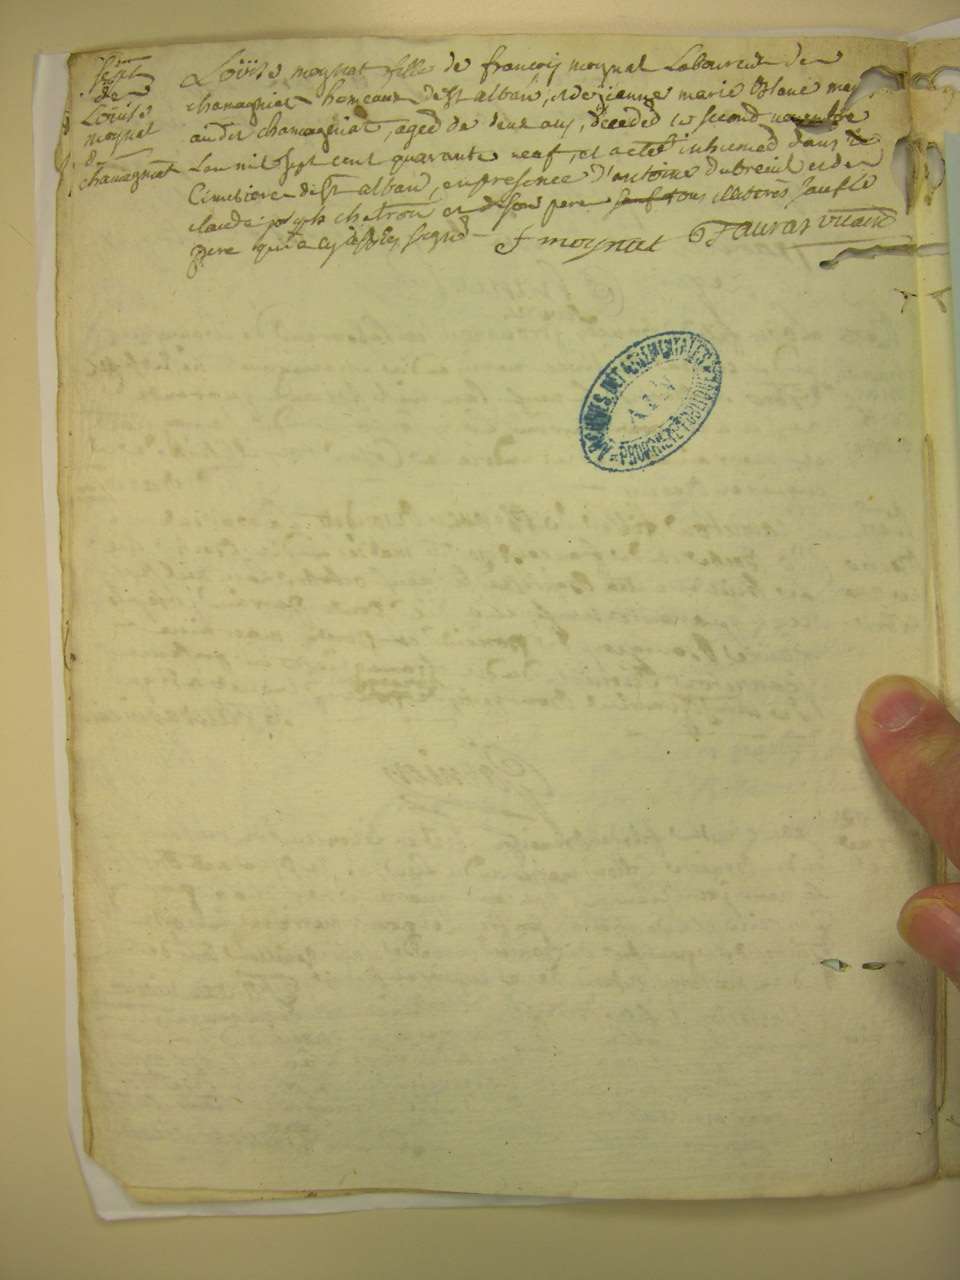 Sept
de
Louise
moynat
de
chamagniat
Louise moynat fille de françois moynat Laboureur de
chamagniat hameau de St alban, et de jeanne marie Blanc ma
audit chamagniat, aged de deux ans, deceded le second novembre
L'an mil sept cent quarante neuf, et a eté inhumed dans le
Cimetiere de St alban, en presence d'antoine Dubreuil et de
claude joseph chatron et de son pere tous illiteres sauf Le
pere qui a cy après signé
F moynat Favrar vicaire
ARCHIVES DEPARTEMENTALES
AIN
PROPRIETE PUBLIQUE